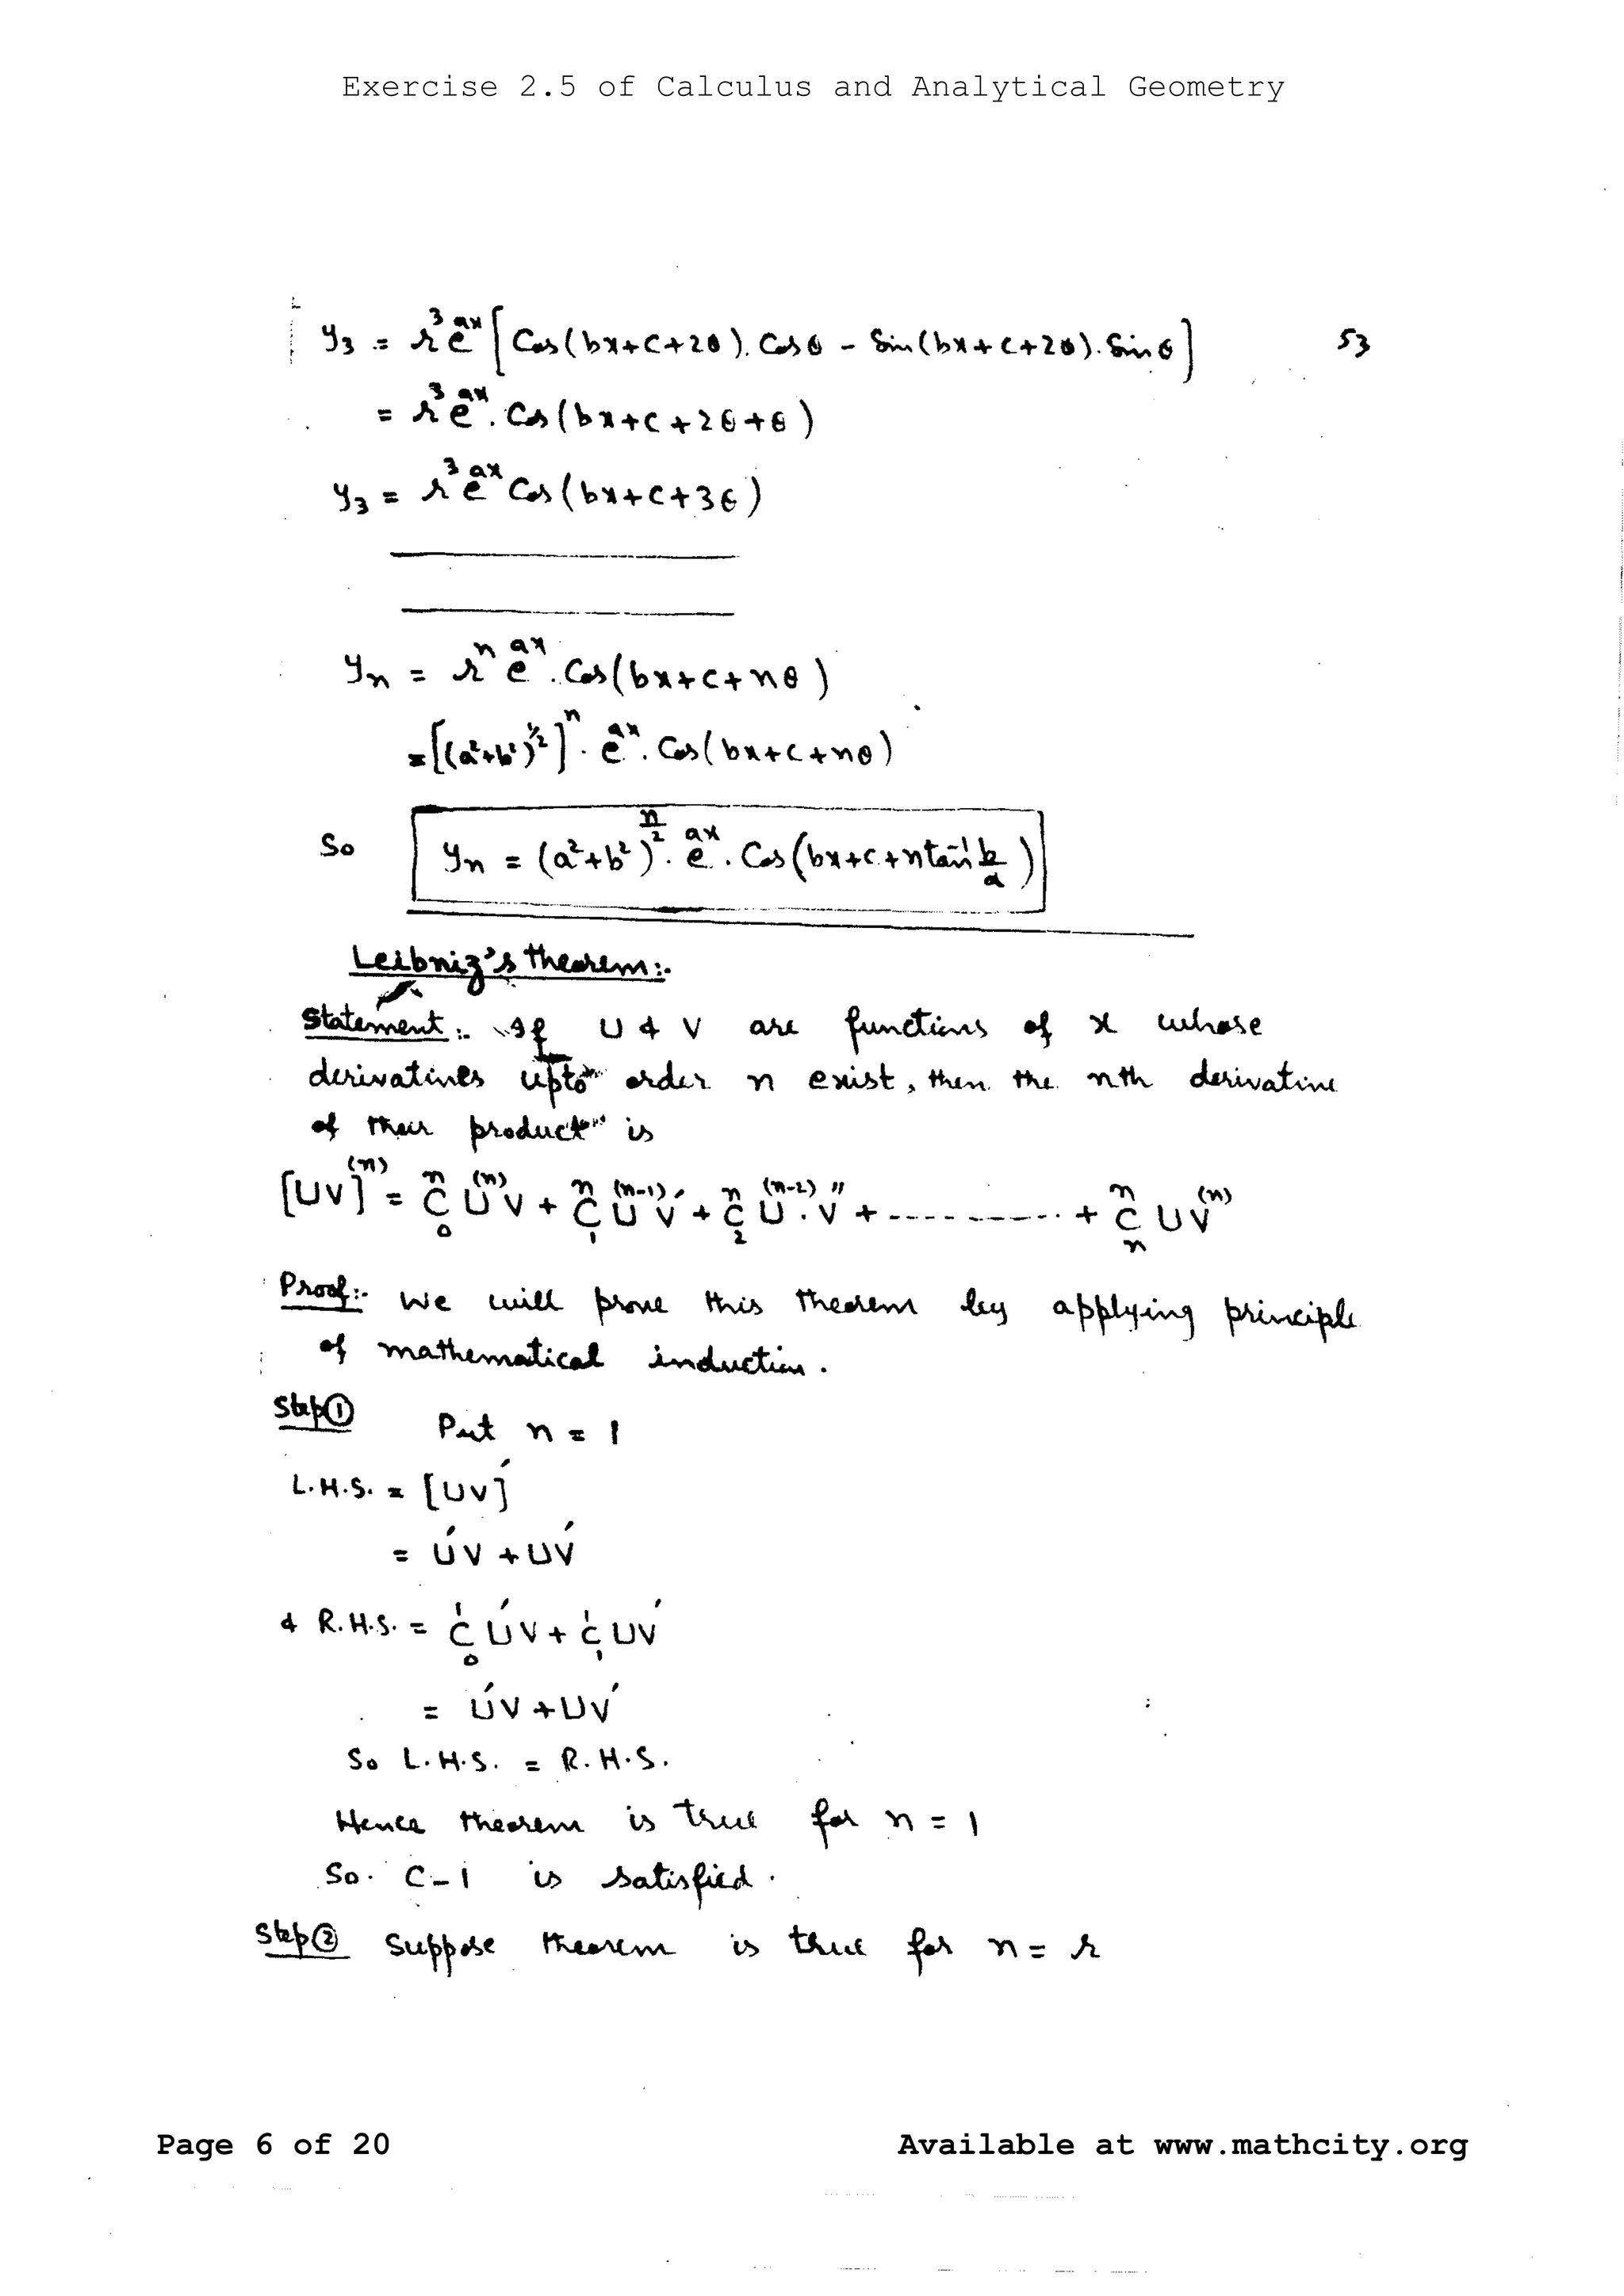 Exercise 2.5 of Calculus and Analytical Geometry
53
y₃ = r³ e^{ax} [Cos(bx+c+2θ). Cosθ - Sin(bx+c+2θ). Sinθ]
= r³ e^{ax}. Cos(bx+c+2θ+θ)
y₃ = r³ e^{ax} Cos(bx+c+3θ)
yₙ = rⁿ e^{ax}. Cos(bx+c+nθ)
= [(a²+b²)^{1/2}]ⁿ. e^{ax}. Cos(bx+c+nθ)
So yₙ = (a²+b²)^{n/2}. e^{ax}. Cos(bx+c+n tan⁻¹ b/a)
Leibniz's theorem:.
Statement:. If U & V are functions of x whose
derivatives upto order n exist, then the nth derivative
of their product is
[UV]^{(n)} = ⁿC₀ U^{(n)}V + ⁿC₁ U^{(n-1)}V′ + ⁿC₂ U^{(n-2)}.V″ + ------------ + ⁿCₙ UV^{(n)}
Proof:- We will prove this theorem by applying principle
of mathematical induction.
Step① Put n = 1
L.H.S. = [UV]′
= U′V + UV′
& R.H.S. = ¹C₀ U′V + ¹C₁ UV′
= U′V + UV′
So L.H.S. = R.H.S.
Hence theorem is true for n = 1
So. C-1 is satisfied.
Step② Suppose theorem is true for n = r
Page 6 of 20
Available at www.mathcity.org